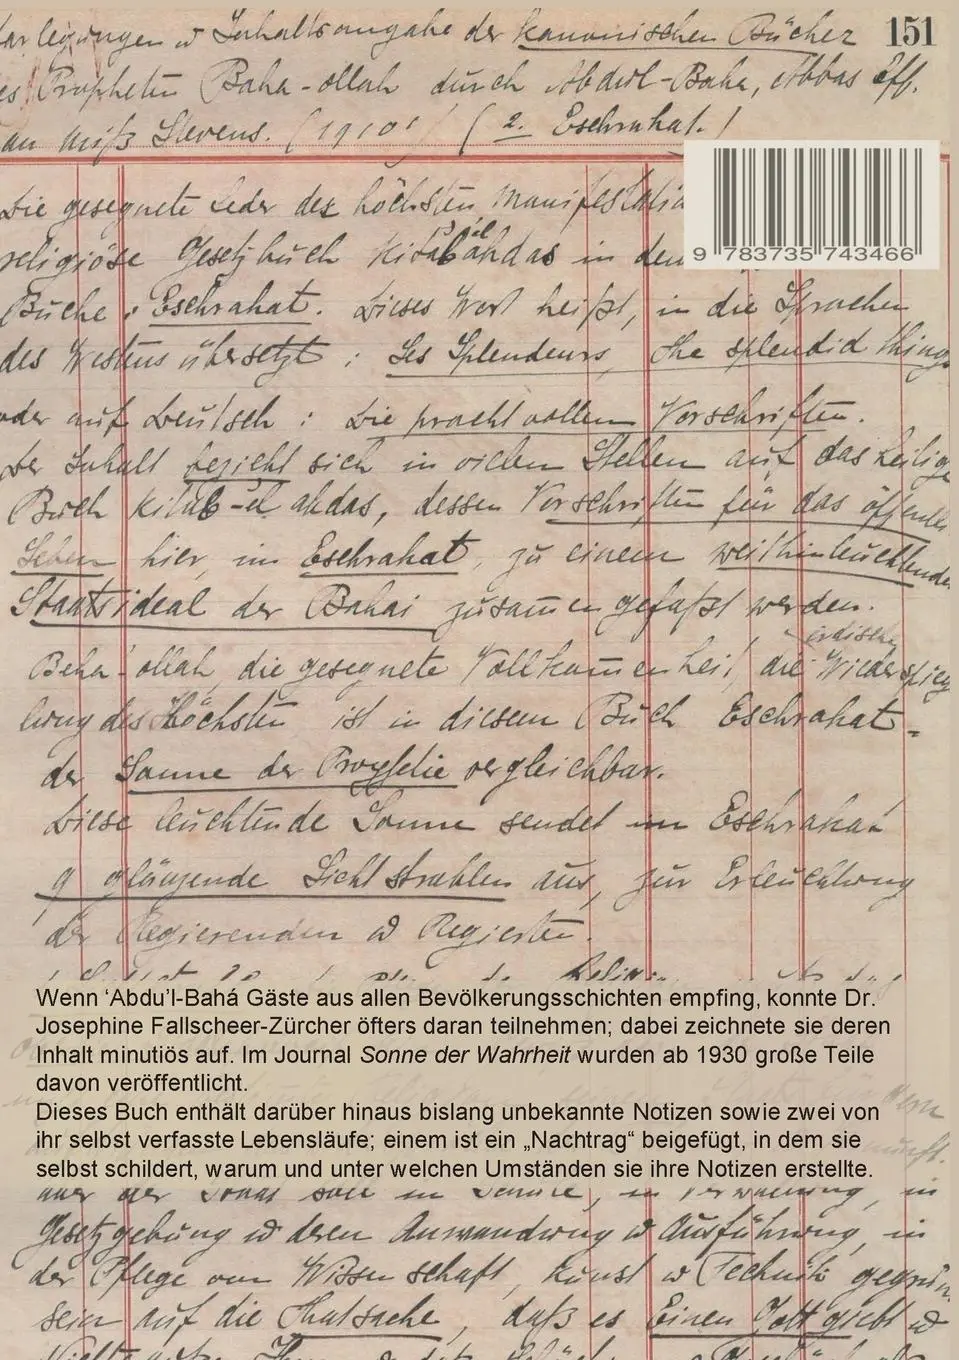 arlegungen u Inhaltsangabe der kanonischen Bücher 151
es Propheten Baha-ollah durch Abdul-Baha, Abbas Eff.
an Miß Stevens. (1910!) (2. Eschrahat.)
Die gesegnete Feder der höchsten Manifestatio
religiöse Gesetzbuch Kitab el ahdas in dem
9 783735 743466
Buche: Eschrahat. Dieses Wort heißt, in die Sprachen
des Westens übersetzt: Les Splendeurs, the splendid things
oder auf Deutsch: Die prachtvollen Vorschriften.
Der Inhalt bezieht sich in vielen Stellen auf das heilige
Buch Kitab-el ahdas, dessen Vorschriften für das öffentl
Leben hier, im Eschrahat, zu einem weithinleuchtende
Staatsideal der Bahai zusammengefaßt werden.
irdische
Beha'-ollah, die gesegnete Vollkommenheit, die Wiederspieg
lung des Höchsten ist in diesem Buch Eschrahat-
der Sonne der Prophetie vergleichbar.
Diese leuchtende Sonne sendet im Eschrahat
9 glänzende Lichtstrahlen aus, zur Erleuchtung
der Regierenden u Regierten.
Wenn ‘Abdu’l-Bahá Gäste aus allen Bevölkerungsschichten empfing, konnte Dr.
Josephine Fallscheer-Zürcher öfters daran teilnehmen; dabei zeichnete sie deren
Inhalt minutiös auf. Im Journal Sonne der Wahrheit wurden ab 1930 große Teile
davon veröffentlicht.
Dieses Buch enthält darüber hinaus bislang unbekannte Notizen sowie zwei von
ihr selbst verfasste Lebensläufe; einem ist ein „Nachtrag“ beigefügt, in dem sie
selbst schildert, warum und unter welchen Umständen sie ihre Notizen erstellte.
der Staat soll in Verwaltung, in
Gesetzgebung u deren Anwendung u Ausführung, in
der Pflege von Wissenschaft, Kunst u Technik gegrün
sein auf die Thatsache, daß es Einen Gott giebt u